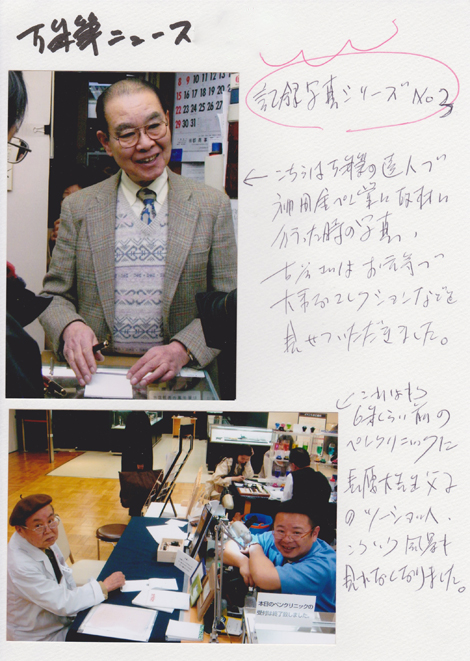 万年筆ニュース
記録写真シリーズ No 3
← こちらは万年筆の達人で
神田金ペン堂に取材に
行った時の写真。
古谷さんはお元気で
大事なコレクションなどを
見せていただきました。
← これはもう
6年くらい前の
ペンクリニックに
長原大先生父子
のツーショット。
こういう風景も
見れなくなりました。
本日のペンクリニックの
受付は終了致しました。
8 9 10 11
15 16 17 18
22 23 24 25
29 30 31